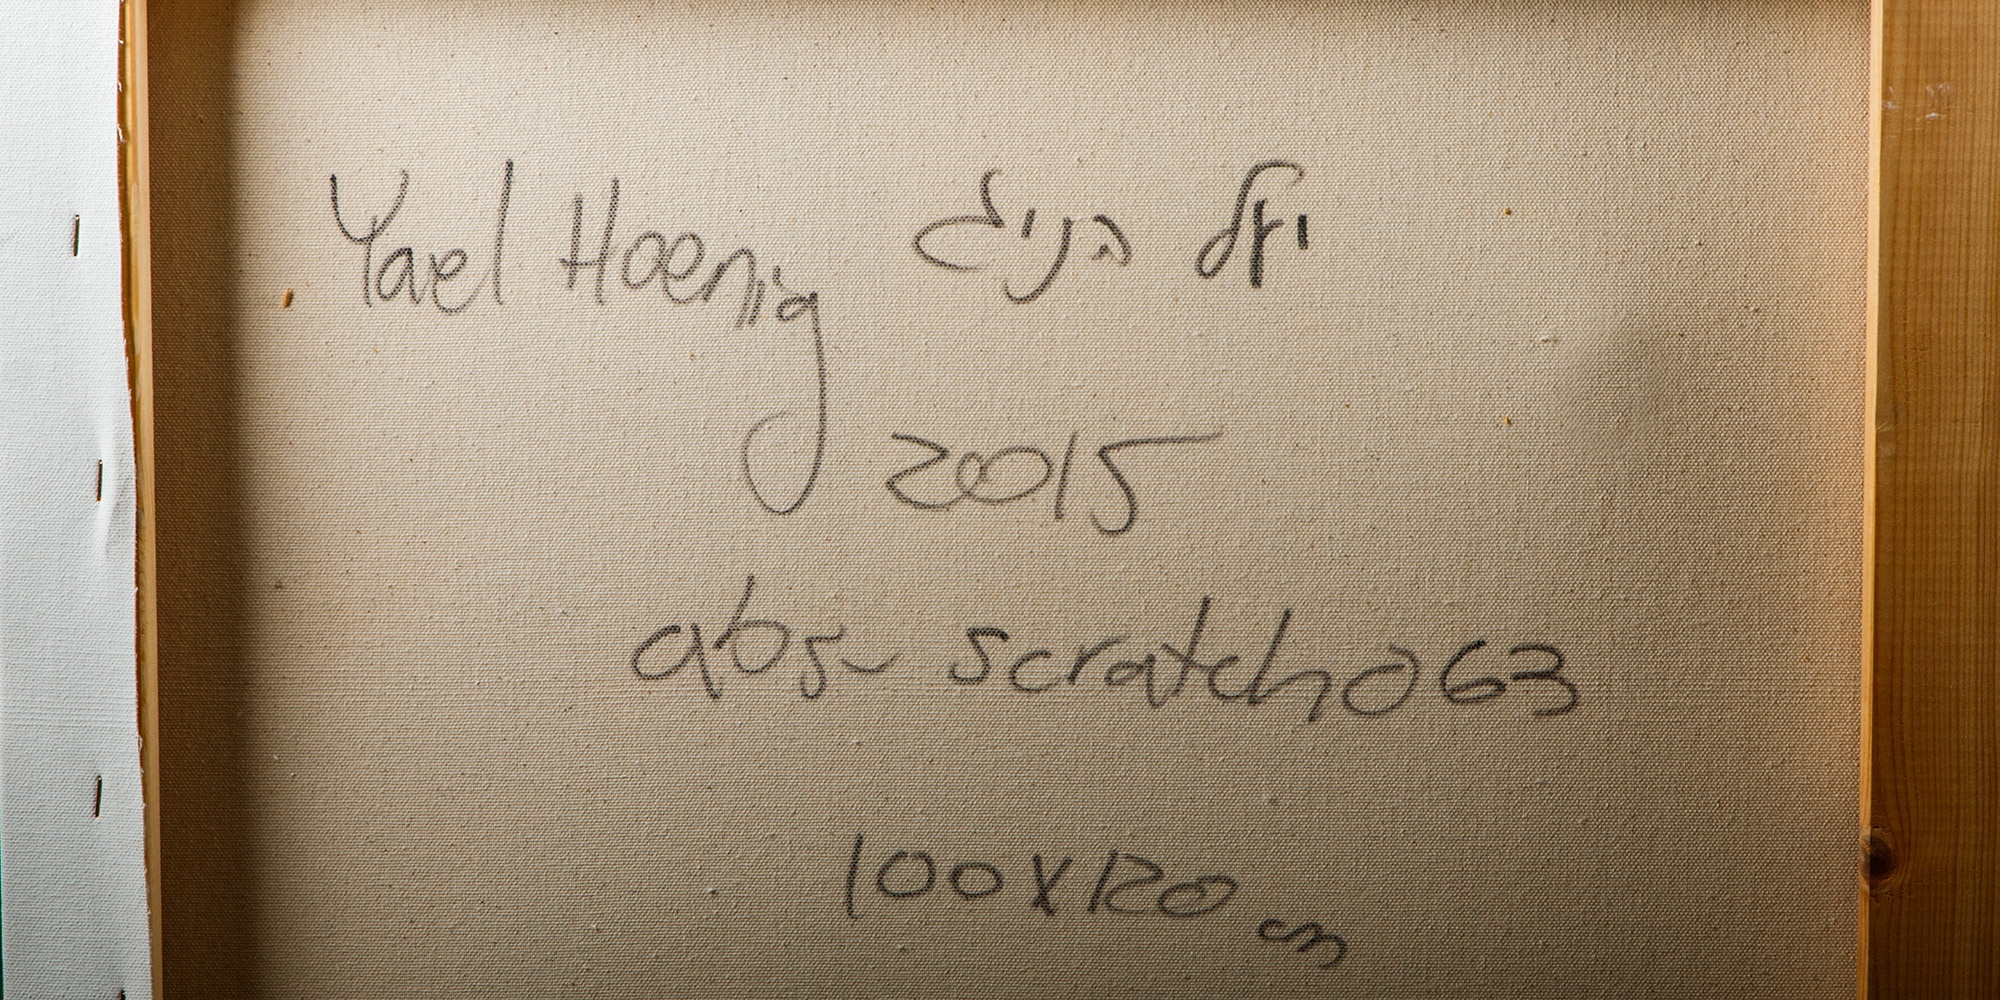 Yael Hoenig יעל הניג
2015
abs- scratch063
100X120 cm